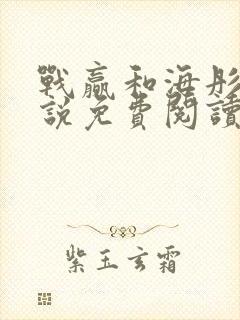 戰贏和海彤
說免費閱讀
紫玉玄霜